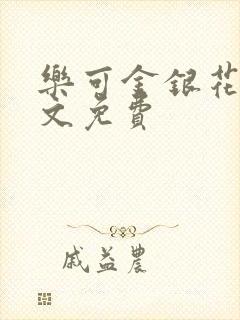 樂可金銀花
文免費
戚益農